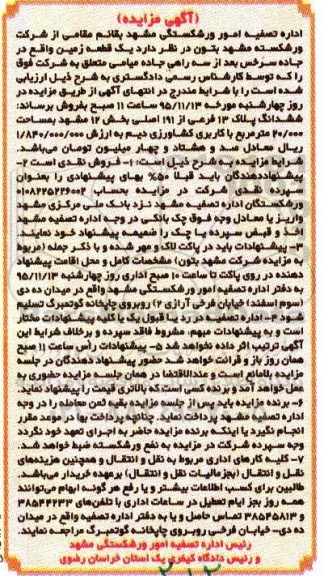 (آگهی مزایده)
اداره تصفیه امور ورشکستگی مشهد بقائم مقامی از شرکت
ورشکسته مشهد بتون در نظر دارد یک قطعه زمین واقع در
جاده سرخس بعد از سه راهی جاده میامی متعلق به شرکت فوق
را که توسط کارشناس رسمی دادگستری به شرح ذیل ارزیابی
شده است را با شرایط مندرج در انتهای آگهی از طریق مزایده در
روز چهارشنبه مورخه ۹۵/۱۱/۱۳ ساعت ۱۱ صبح بفروش برساند:
ششدانگ پلاک ۱۳ فرعی از ۱۹۱ اصلی بخش ۱۲ مشهد بمساحت
۲۰/۰۰۰ مترمربع با کاربری کشاورزی دیم به ارزش ۱/۸۴۰/۰۰۰/۰۰۰
ریال معادل صد و هشتاد و چهار میلیون تومان می‌باشد.
شرایط مزایده به شرح ذیل است: ۱- فروش نقدی است ۲-
پیشنهاددهندگان باید قبلا ۵۰% بهای پیشنهادی را بعنوان
سپرده نقدی شرکت در مزایده بحساب ۰۱۰۸۲۲۵۲۲۶۰۰۲
ورشکستگان اداره تصفیه مشهد نزد بانک ملی مرکزی مشهد
واریز یا معادل وجه فوق چک بانکی در وجه اداره تصفیه مشهد
اخذ و قبض سپرده یا چک را ضمیمه پیشنهاد خود نمایند.
۳- پیشنهادات باید در پاکت لاک و مهر شده و با ذکر جمله (مربوط
به مزایده شرکت مشهد بتون) مشخصات کامل و محل اقامت پیشنهاد
دهنده در روی پاکت تا ساعت ۱۰ صبح اداری روز چهارشنبه ۹۵/۱۱/۱۳
به دفتر اداره تصفیه امور ورشکستگی مشهد واقع در میدان ده دی
(سوم اسفند) خیابان فرخی (رازی ۲) روبروی چاپخانه گوتمبرگ تسلیم
شود ۴- اداره تصفیه در رد یا قبول یک یا کلیه پیشنهادات مختار
است و به پیشنهادات مبهم، مشروط فاقد سپرده و برخلاف شرایط این
آگهی ترتیب اثر داده نخواهد شد ۵- پیشنهادات رأس ساعت ۱۱ صبح
همان روز باز و قرائت خواهد شد حضور پیشنهاددهندگان در جلسه
مزایده بلامانع است و عندالاقتضا در همان جلسه مزایده حضوری به
عمل خواهد آمد و برنده کسی است که بالاترین قیمت را پیشنهاد نماید.
۶- برنده مزایده باید پس از جلسه مزایده بقیه ثمن معامله را در وجه
اداره تصفیه مشهد پرداخت نماید. چنانچه پرداخت بها در موعد مقرر
انجام نگیرد یا اینکه برنده مزایده حاضر به اجرای تعهد خود نگردد
وجه سپرده شرکت در مزایده به نفع ورشکسته ضبط خواهد شد.
۷- کلیه کارهای اداری مربوط به نقل و انتقال و همچنین هزینه‌های
نقل و انتقال (بجز مالیات نقل و انتقال) برعهده خریدار می‌باشد.
طالبین برای کسب اطلاعات بیشتر و یا رفع هر گونه ابهام می‌توانند
همه روز بجز ایام تعطیل در ساعات اداری با تلفن‌های ۳۸۵۴۴۲۳۳
و ۳۸۵۴۵۸۱۳ تماس حاصل و یا به دفتر اداره تصفیه واقع در میدان
ده دی- خیابان فرخی روبروی چاپخانه گوتمبرگ مراجعه نمایند.
رئیس اداره تصفیه امور ورشکستگی مشهد
و رئیس دادگاه کیفری یک استان خراسان رضوی